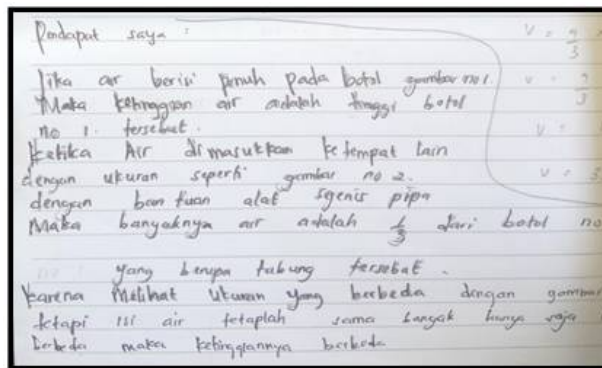 Pendapat saya :
Jika air berisi penuh pada botol gambar no 1.
Maka ketinggian air adalah tinggi botol
no 1. tersebut.
Ketika Air dimasukkan ke tempat lain
dengan ukuran seperti gambar no 2.
dengan bantuan alat sgenis pipa
Maka banyaknya air adalah 1/3 dari botol no
yang berupa tabung tersebut.
Karena Melihat ukuran yang berbeda dengan gambar
tetapi isi air tetaplah sama banyak hanya saja
berbeda maka ketinggiannya berbeda
V =
V =
V =
V =